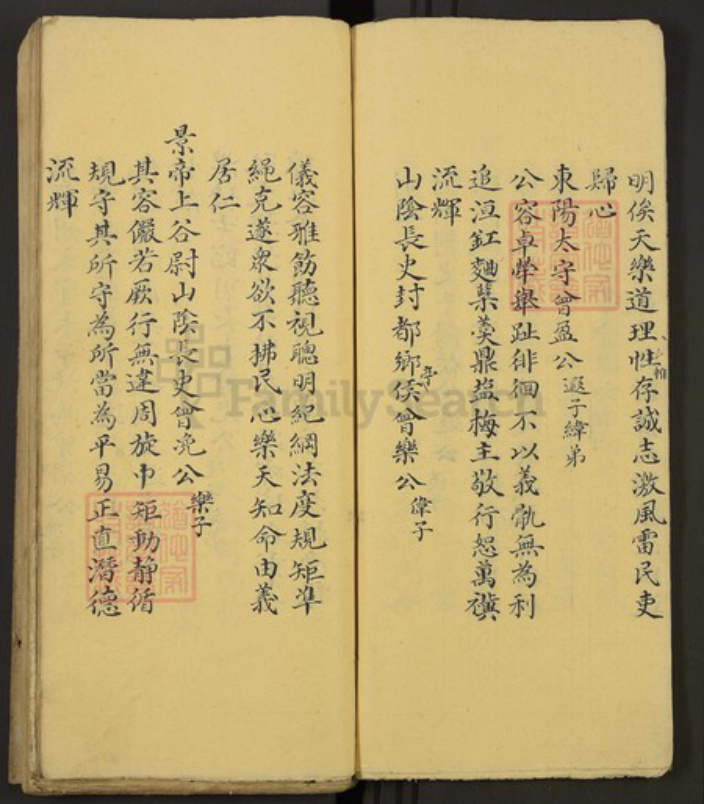 明俟天樂道理性存誠志激風雷民吏
歸心
東陽太守曾盈公遐子緯弟
公容卓犖舉趾徘徊不以義骫無為利
追洹釭麯櫱羮鼎塩梅主敬行恕萬禩
流輝
山陰長史封都鄉亭侯曾樂公偉子
儀容雅飭聽視聰明紀綱法度規矩準
繩克遂衆欲不拂民心樂天知命由義
居仁
景帝上谷尉山陰長史曾浼公樂子
其容儼若厥行無違周旋中矩動静循
規守其所守為所當為平易正直潛德
流輝
FamilySearch